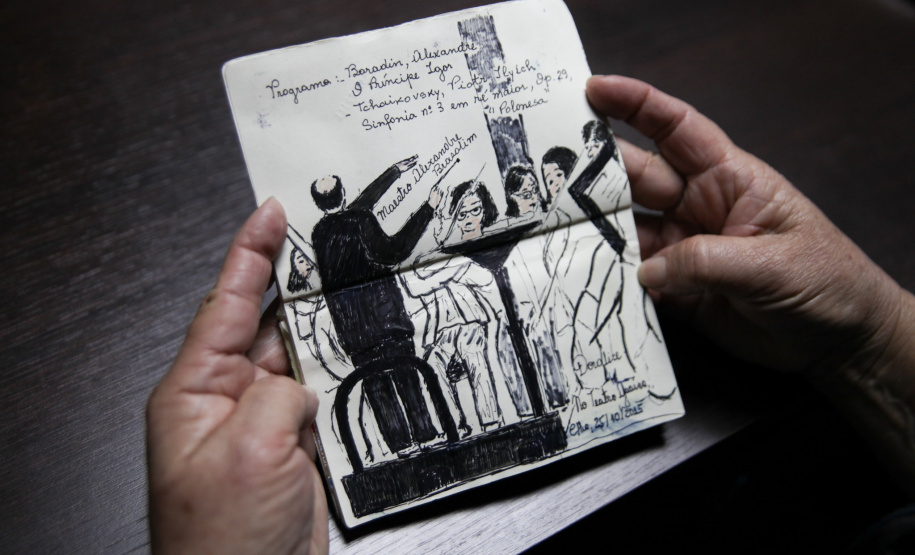 Programa: - Borodin, Alexandre
O Príncipe Igor
- Tchaikovsky, Piotr Ilyich
Sinfonia nº 3 em ré maior, Op. 29,
"Polonesa
Maestro Alexandre
Brasolim
Doralice
No Teatro Guaíra
25/10/2015